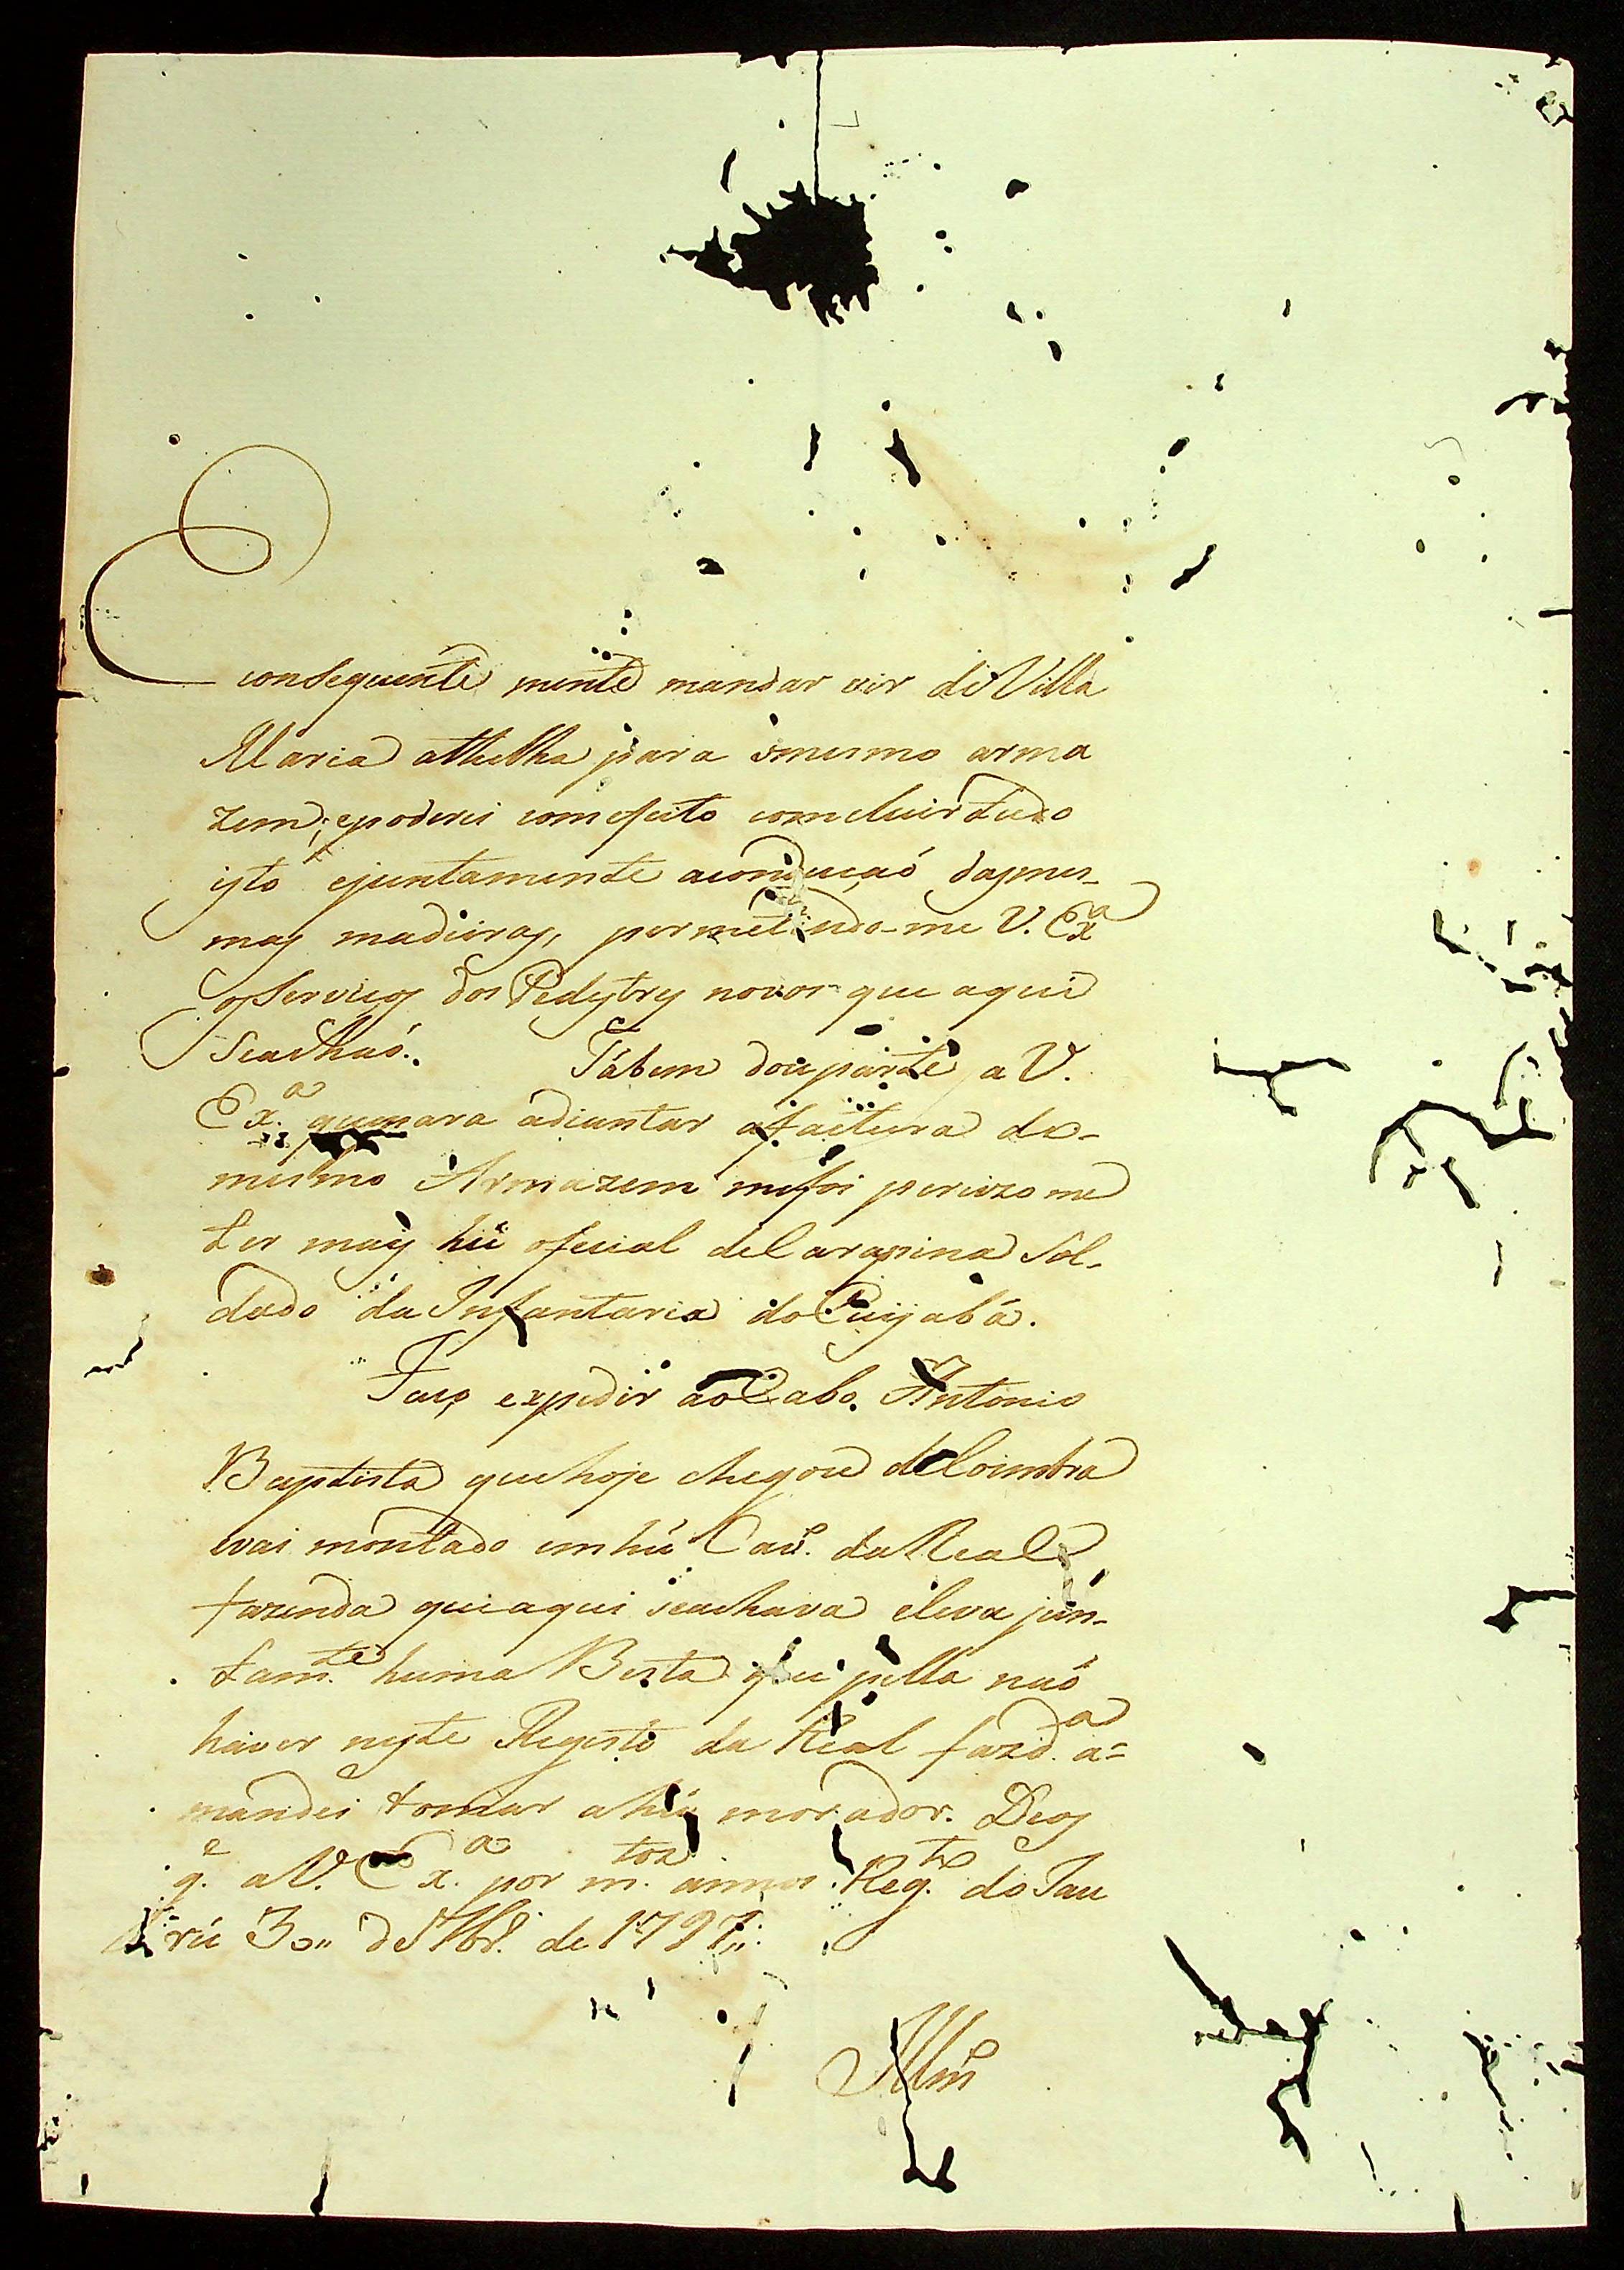 consequente mente mandar vir de Villa
Maria athelha para omesmo arma
zem; epoderei comefeito comcluir tudo
isto ejuntamente aconduçaó dasmes-
mas madeiras, permetindo-me V. Exª
osServiços dos Pedestres novos que aqui
seachaó. Tábem douparte a V.
Exª. quepara adiantar afactura do-
mesmo Armazem mefoi percizo me
ter mais hũ oficial deCarapina Sol-
dado da Infantaria doCuijabá.
Faço expedir aoCabo Antonio
Baptista quehoje chegou deCoimbra
evai montado emhũ Cavº. da Real
fazenda queaqui seachava eleva jun-
tamte. huma Besta que pella naó
haver neste Registo da Real fazdª. a=
mandei tomar ahũ morador. Deos
gᵉ. aV. Exª. por mtos. annos. Regto. do Jau
rú 30,, d 7br͂. de 1797,,
Illmº